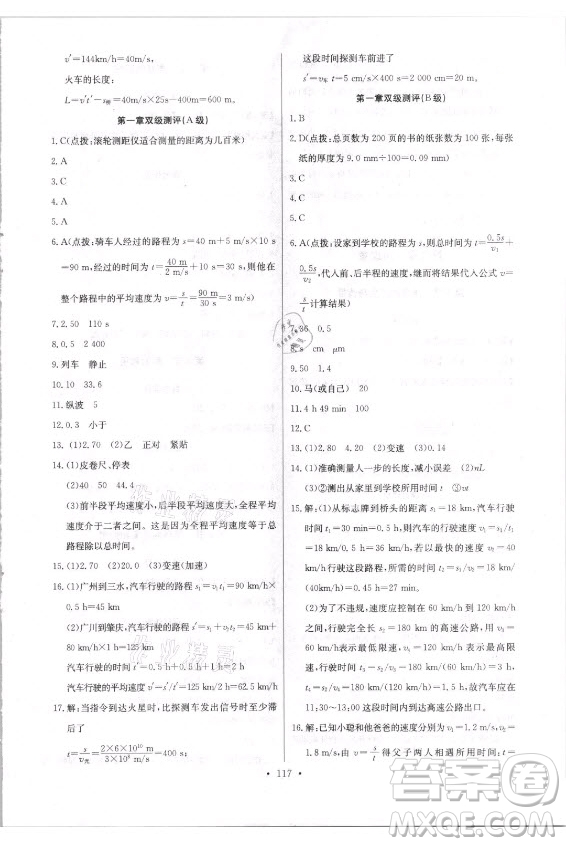 v'=144km/h=40m/s,
火车的长度:
L=v't'-s桥=40m/s×25s-400m=600 m.
第一章双级测评(A级)
1.C(点拨:滚轮测距仪适合测量的距离为几百米)
2.A
3.C
4.A
5.A
6.A(点拨:骑车人经过的路程为 s=40 m+5 m/s×10 s
=90 m,经过的时间为 t=40 m/2 m/s+10 s=30 s,则他在
整个路程中的平均速度为 v=s/t=90 m/30 s=3 m/s)
7.2.50 110 s
8.0.5 2 400
9.列车 静止
10.10 33.6
11.纵波 5
12.0.3 小于
13.(1)2.70 (2)乙 正对 紧贴
14.(1)皮卷尺、停表
(2)40 50 44.4
(3)前半段平均速度小,后半段平均速度大,全程平均
速度介于二者之间。这是因为全程平均速度等于总
路程除以总时间。
15.(1)2.70 (2)20.0 (3)变速(加速)
16.(1)广州到三水,汽车行驶的路程 s₁=v₁t₁=90 km/h×
0.5 h=45 km
(2)广州到肇庆,汽车行驶的路程 s'=s₁+s₂=45 km+
80 km/h×1 h=125 km
汽车行驶的时间 t'=0.5 h+0.5 h+1 h=2 h
汽车行驶的平均速度 v'=s'/t'=62.5 km/h
17.解:当指令到达火星时,比探测车发出信号时至少滞
后了
t=s/v光=2×6×10¹⁰ m/3×10⁸ m/s=400 s;
这段时间探测车前进了
s'=v车 t=5 cm/s×400 s=2 000 cm=20 m。
第一章双级测评(B级)
1.B
2.D(点拨:总页数为 200 页的书的纸张数为 100 张,每张
纸的厚度为 9.0 mm÷100=0.09 mm)
3.C
4.C
5.C
6.A(点拨:设家到学校的路程为 s,则总时间为 t=0.5s/v₁+
0.5s/v₂,代入前、后半程的速度,继而将结果代入公式 v=
s/t计算结果)
7.36 0.5
8.s cm μm
9.50
10.马(或自己) 20
11.4 h 49 min 100
12.C
13.(1)2.80 4.20 (2)变速 (3)0.4
14.(1)准确测量人一步的长度,减小误差 (2)nL
(3)②测出从家里到学校所用时间 t ③vt
15.解:(1)从标志牌到桥头的距离 s₁=18 km,汽车行驶的
时间 t₁=30 min=0.5 h,则汽车的行驶速度 v₁=s₁/t₁
=18 km/0.5 h=36 km/h;若以最快的速度 v₂=
40 km/h行驶这段路程,所需的时间 t₂=s₁/v₂=
18 km/(40 km/h)=0.45 h。
(2)为了不违规,速度应控制在 60 km/h 到 120 km/h
之间,总长度 s₂=180 km 的高速公路上,用 v₃=
60 km/h 表示最低限速,v₄=120 km/h 表示最高限
速,行驶时间 t₃=s₂/v₃=180 km/(60 km/h)=3 h,
t₄=s₂/v₄=180 km/(120 km/h)=1.5 h。故汽车应在
11:30~13:00这段时间内到达高速公路出口。
16.解:(1)已知小聪和他爸爸的速度分别为v₁=1.2 m/s,v₂=
1.8 m/s,由 v=s/t得父子两人相遇所用时间
· 117 ·
答案圈
MXQE.COM